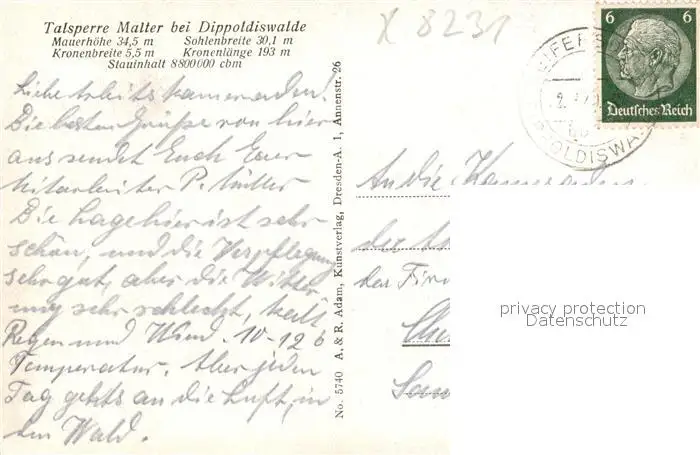 Talsperre Malter bei Dippoldiswalde
Mauerhöhe 34,5 m Sohlenbreite 30,1 m
Kronenbreite 5,5 m Kronenlänge 193 m
Stauinhalt 8800000 cbm
X 8231
6 6
Deutsches Reich
Liebe Arbeitskameraden!
Die besten Grüße von hier
aus sendet Euch Euer
Mitarbeiter P. Müller
Die Lage hier ist sehr
schön, und die Verpflegung
sehr gut, aber die Witter
ung sehr schlecht, kalt
Regen und Wind. 10-12 6
Temperatur. Aber jeden
Tag gehts an die Luft, in
den Wald.
No. 5740 A. & R. Adam, Kunstverlag, Dresden-A. 1, Annenstr. 26
An die Kameraden
der
der Fir
privacy protection
Datenschutz